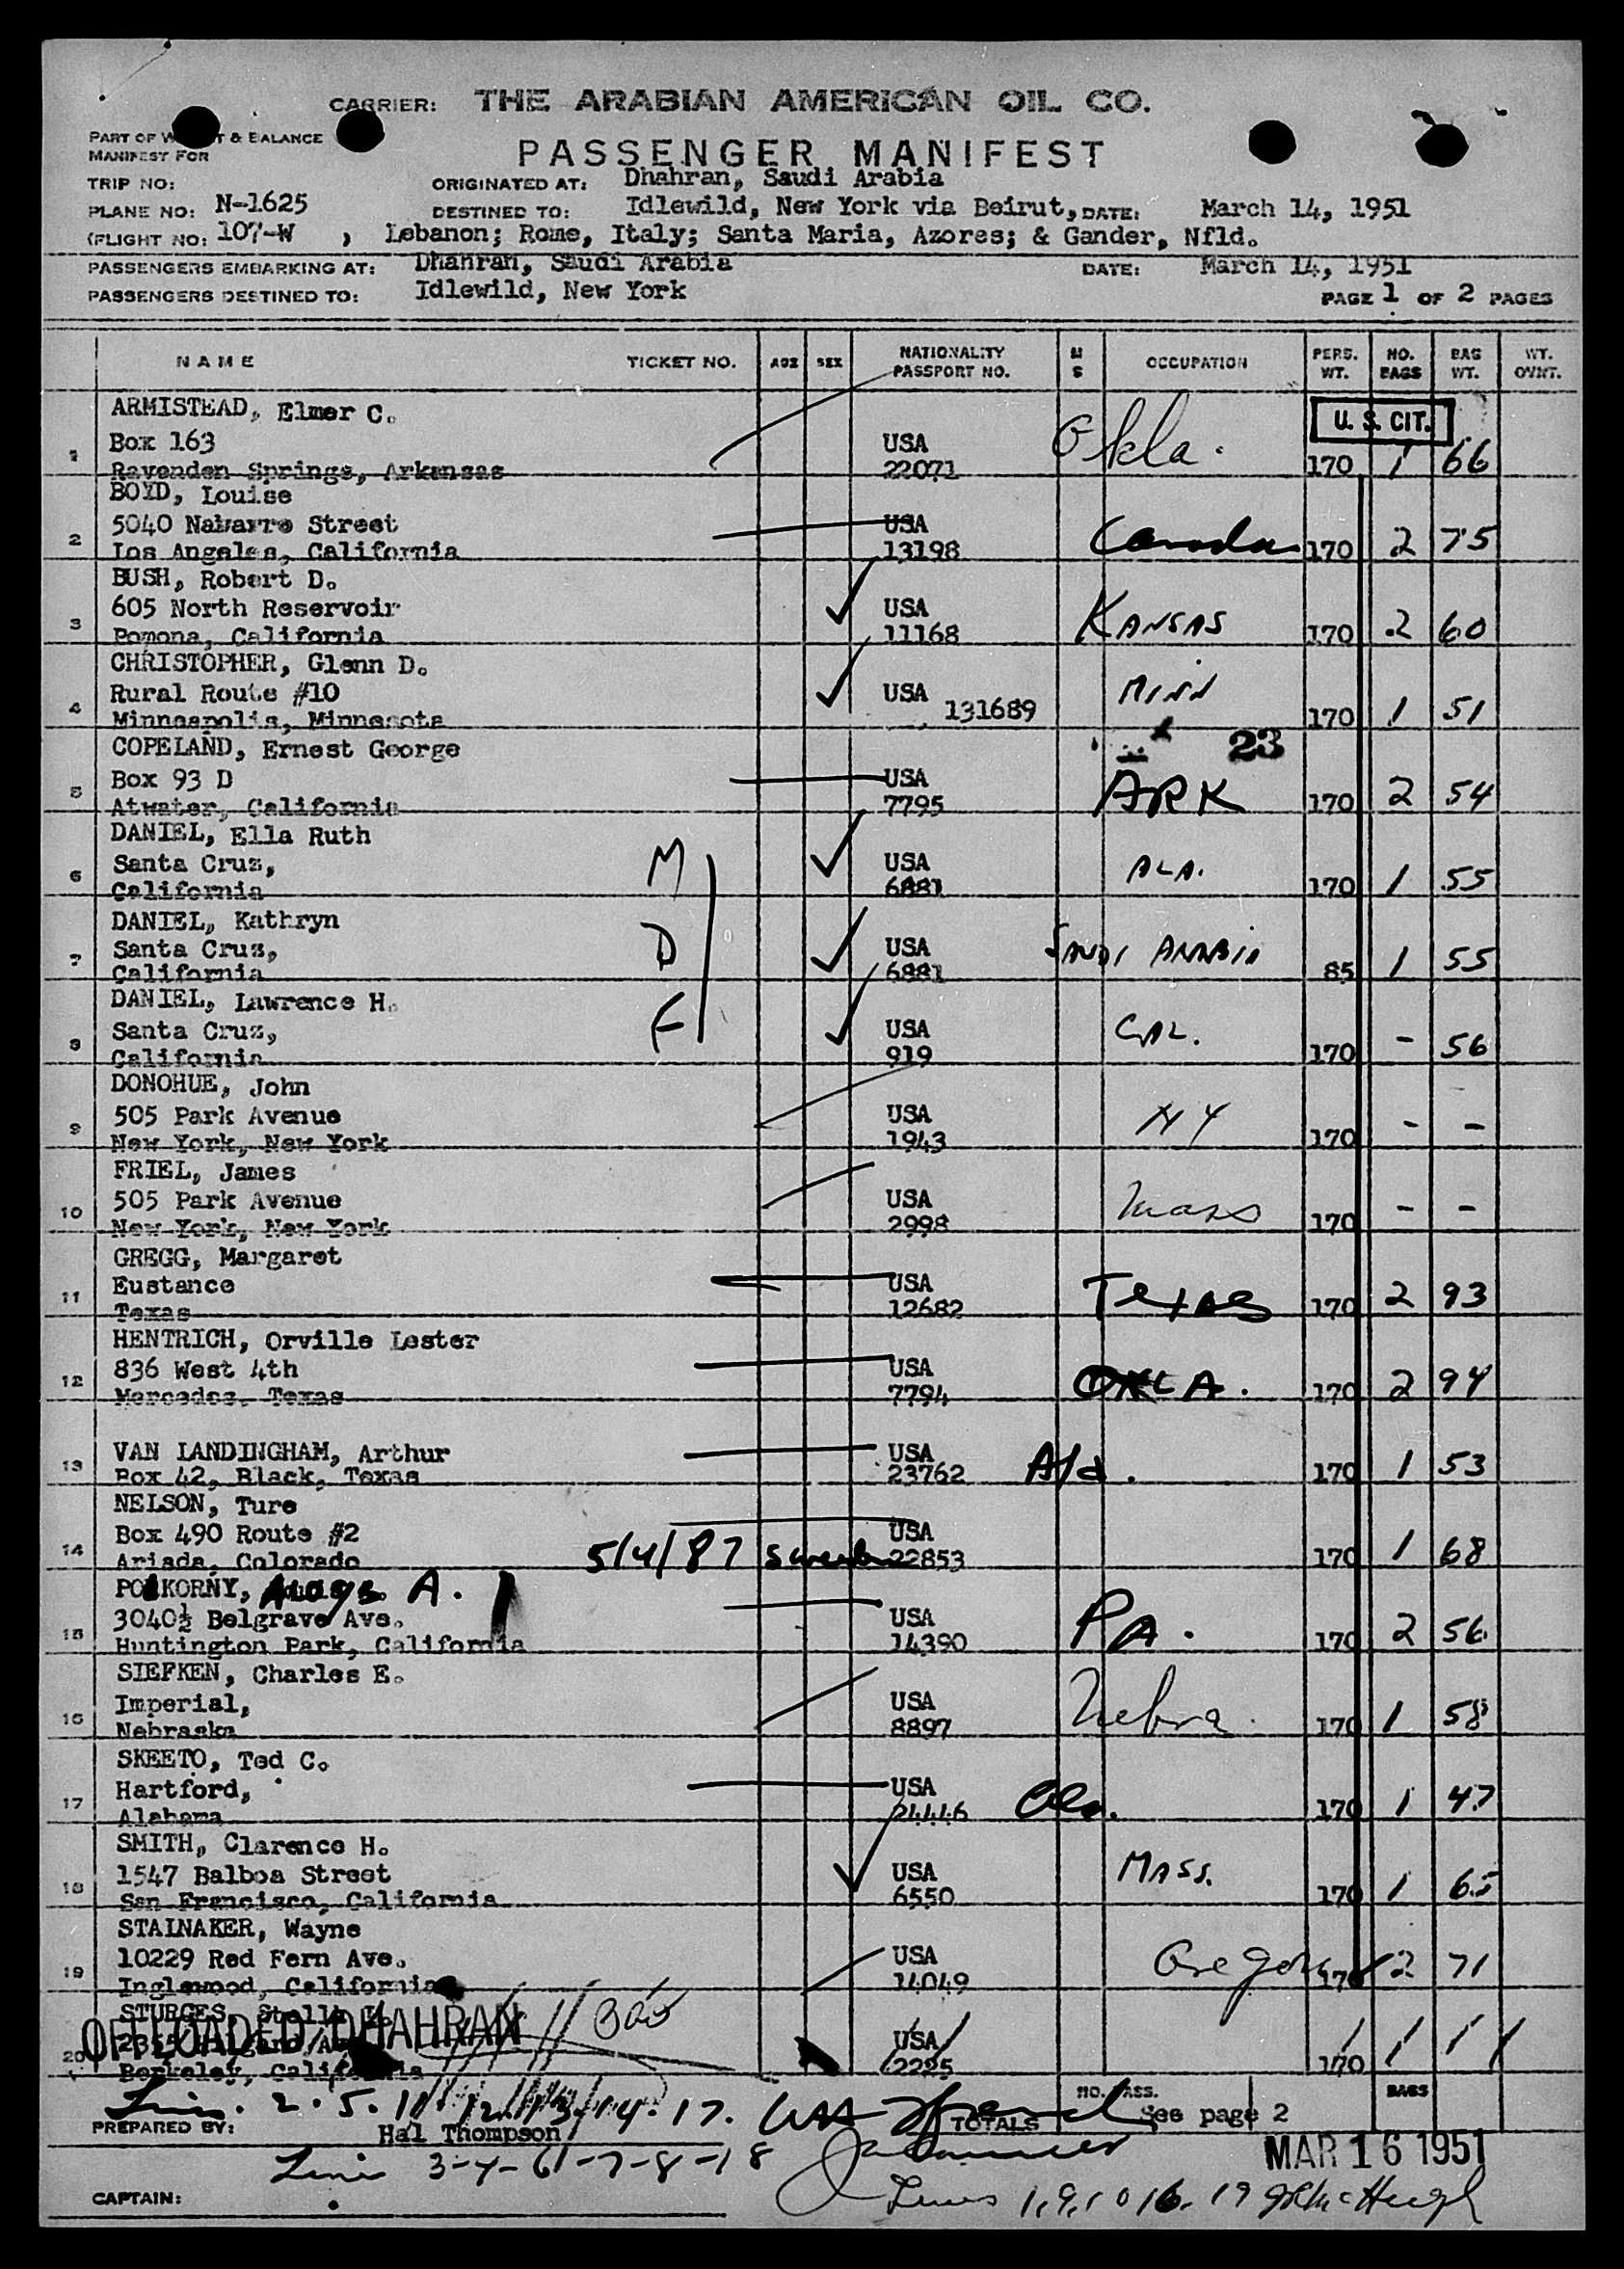 CARRIER: THE ARABIAN AMERICAN OIL CO.
PART OF & BALANCE
MANIFEST FOR
PASSENGER MANIFEST
TRIP NO: ORIGINATED AT: Dhahran, Saudi Arabia
PLANE NO: N-1625 DESTINED TO: Idlewild, New York via Beirut, DATE: March 14, 1951
(FLIGHT NO: 107-W , Lebanon; Rome, Italy; Santa Maria, Azores; & Gander, Nfld.
PASSENGERS EMBARKING AT: Dhahran, Saudi Arabia DATE: March 14, 1951
PASSENGERS DESTINED TO: Idlewild, New York PAGE 1 OF 2 PAGES
NAME TICKET NO. AGE SEX NATIONALITY PASSPORT NO. M S OCCUPATION PERS. WT. NO. BAGS BAG WT. WT. OVNT.
ARMISTEAD, Elmer C. U. S. CIT.
1 Box 163 USA Okla.
Ravenden Springs, Arkansas 22071 170 1 66
BOYD, Louise
2 5040 Navarro Street USA Canada
Los Angeles, California 13198 170 2 75
BUSH, Robert D.
3 605 North Reservoir USA KANSAS
Pomona, California 11168 170 2 60
CHRISTOPHER, Glenn D.
4 Rural Route #10 USA 131689 MINN
Minneapolis, Minnesota 170 1 51
COPELAND, Ernest George 23
5 Box 93 D USA ARK
Atwater, California 7795 170 2 54
DANIEL, Ella Ruth
6 Santa Cruz, M USA ALA.
California 6881 170 1 55
DANIEL, Kathryn
7 Santa Cruz, D USA SAUDI ARABIA
California 6881 85 1 55
DANIEL, Lawrence H.
8 Santa Cruz, F USA CAL.
California 919 170 - 56
DONOHUE, John
9 505 Park Avenue USA NY
New York, New York 1943 170 - -
FRIEL, James
10 505 Park Avenue USA Mass
New York, New York 2998 170 - -
GREGG, Margaret
11 Eustance USA Texas
Texas 12682 170 2 93
HENTRICH, Orville Lester
12 836 West 4th USA OKLA.
Mercedes, Texas 7794 170 2 94
13 VAN LANDINGHAM, Arthur USA Ala.
Box 42, Black, Texas 23762 170 1 53
NELSON, Ture
14 Box 490 Route #2 USA
Ariada, Colorado 5/4/87 Sweden 22853 170 1 68
POKORNY, A.
15 3040½ Belgrave Ave. USA PA.
Huntington Park, California 14390 170 2 56
SIEFKEN, Charles E.
16 Imperial, USA Nebra.
Nebraska 8897 170 1 58
SKEETO, Ted C.
17 Hartford, USA Ala.
Alabama 24446 170 1 47
SMITH, Clarence H.
18 1547 Balboa Street USA MASS.
San Francisco, California 6550 170 1 65
STALNAKER, Wayne
19 10229 Red Fern Ave. USA Oregon
Inglewood, California 14049 170 2 71
STURGES,
OFFLOADED DHAHRAN
20 USA
Berkeley, California 2225 170
2. 5. 11. 12. 13. 14. 17. NO. PASS. BAGS
PREPARED BY: Hal Thompson TOTALS See page 2
3-4-6-7-8-18 MAR 16 1951
CAPTAIN: Lines 1, 9, 10 16. 19 McHugh